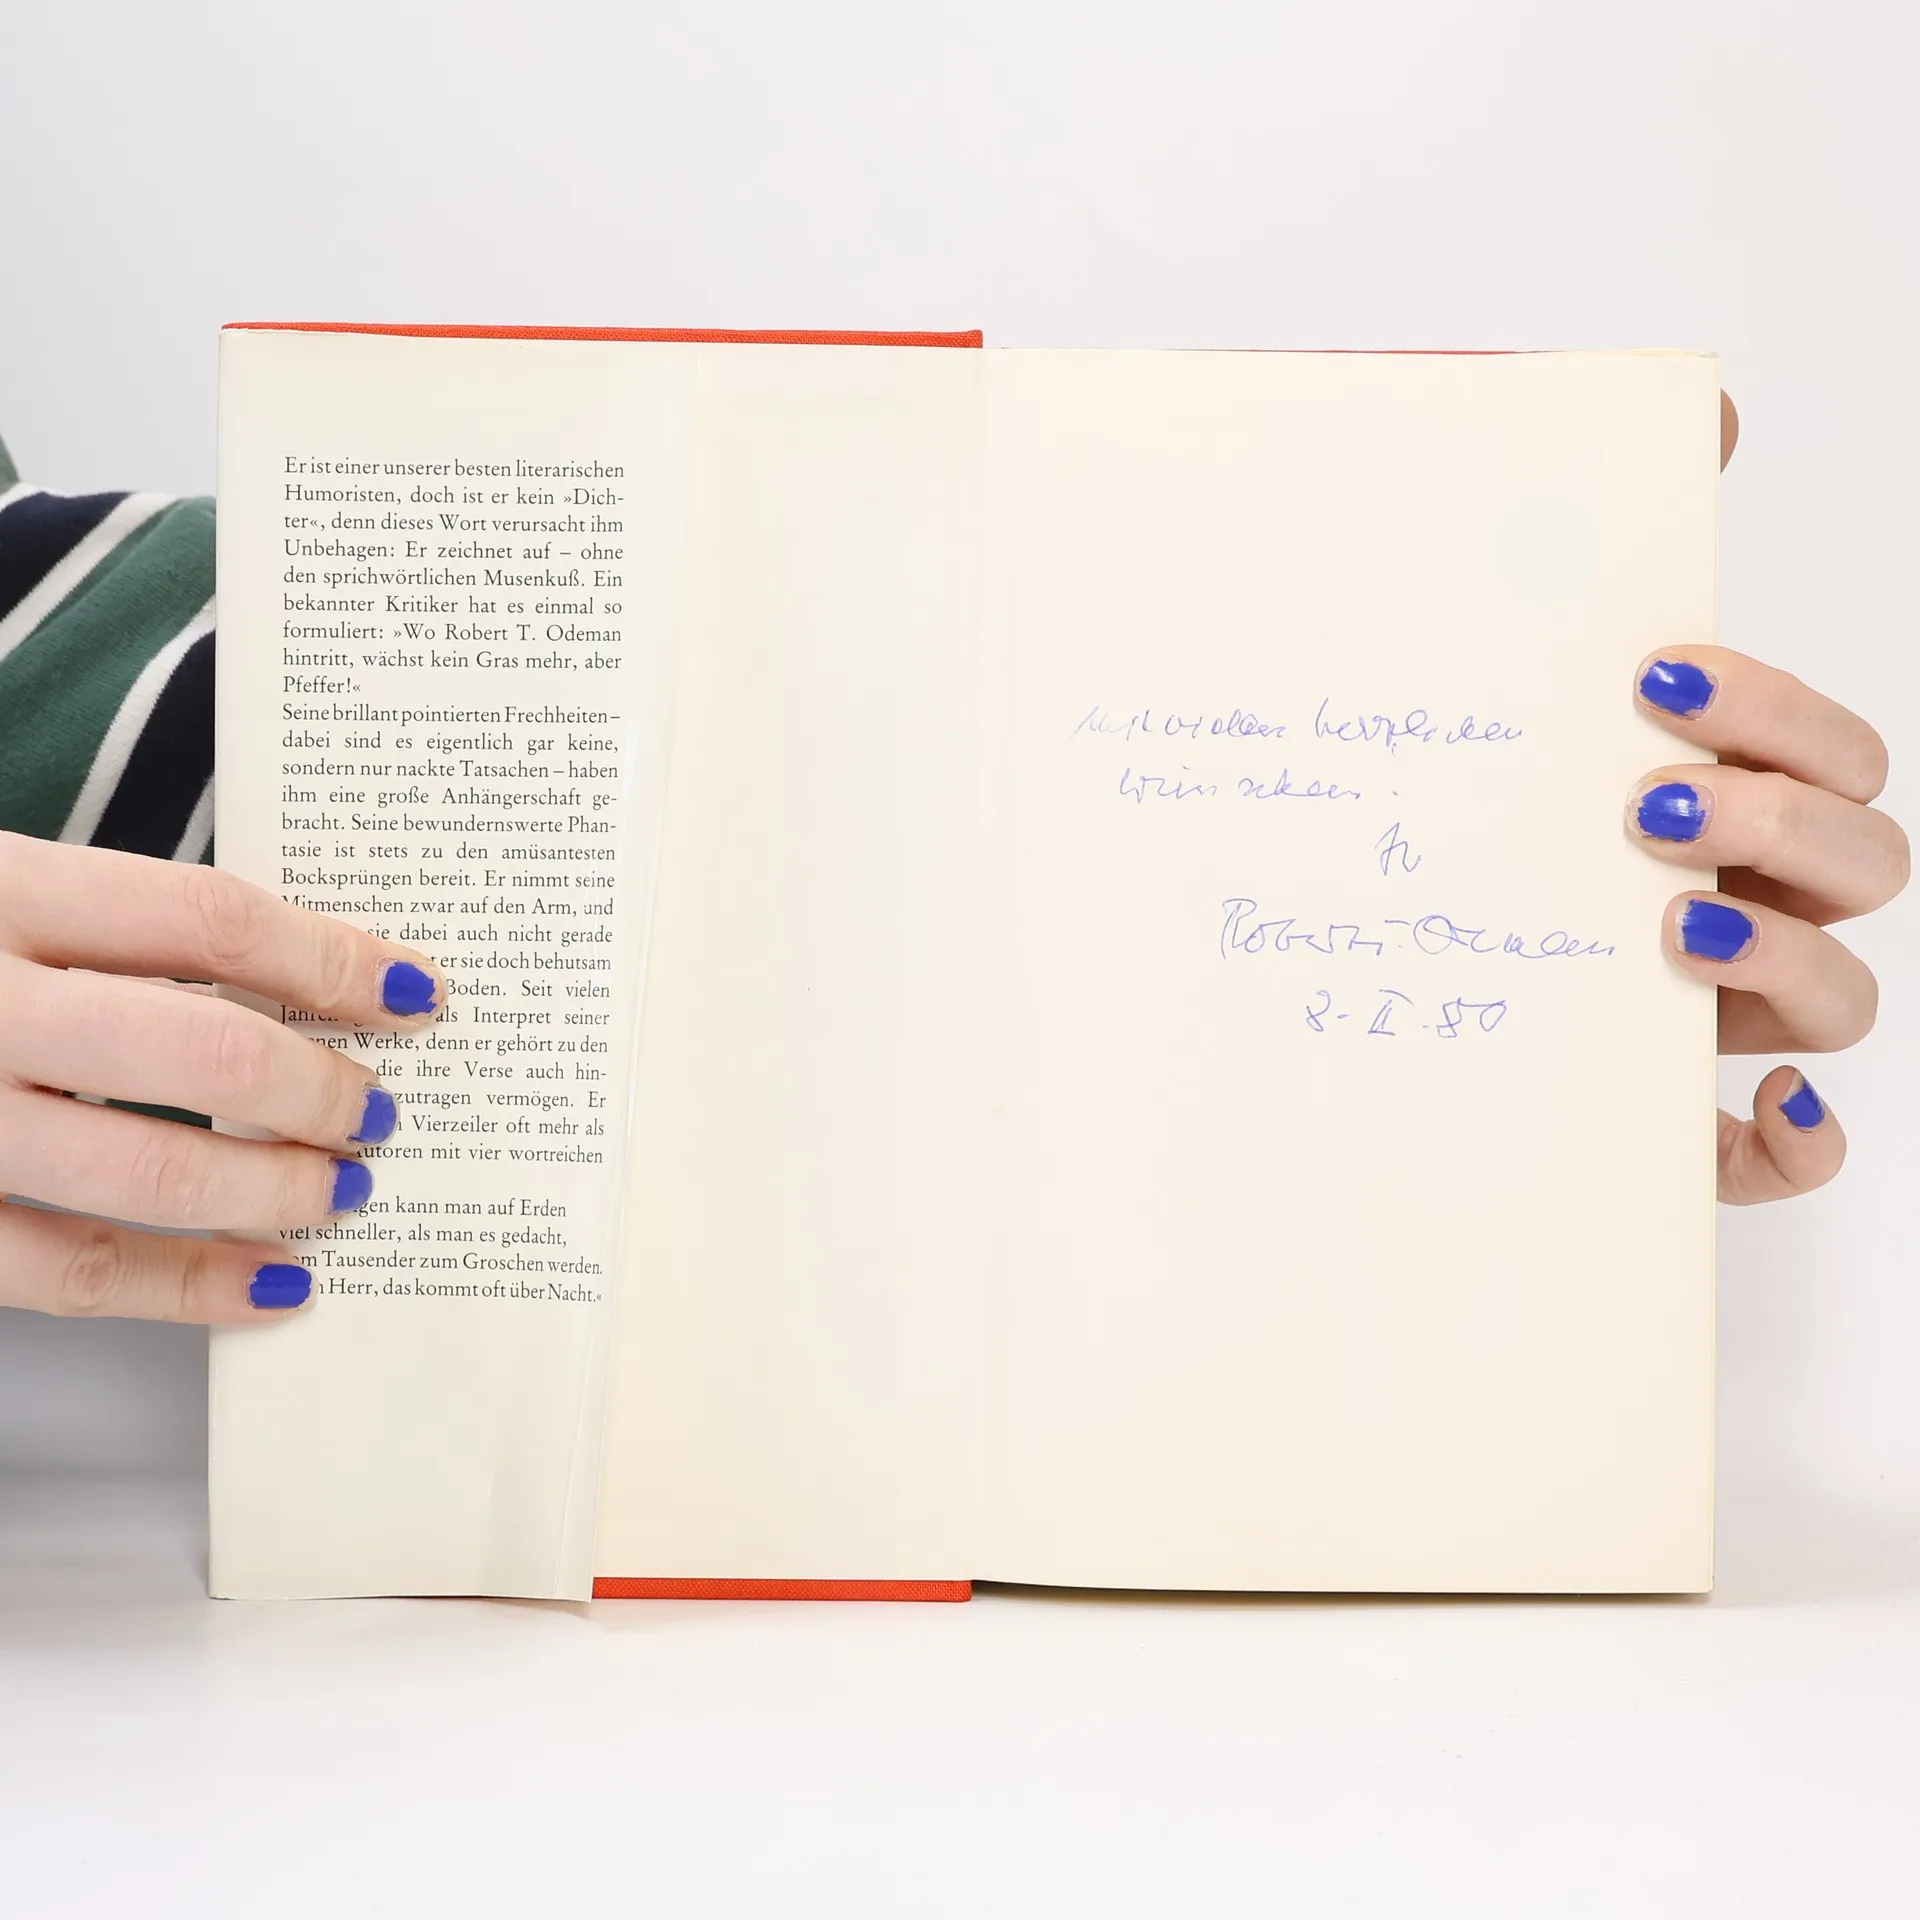 Er ist einer unserer besten literarischen
Humoristen, doch ist er kein »Dich-
ter«, denn dieses Wort verursacht ihm
Unbehagen: Er zeichnet auf – ohne
den sprichwörtlichen Musenkuß. Ein
bekannter Kritiker hat es einmal so
formuliert: »Wo Robert T. Odeman
hintritt, wächst kein Gras mehr, aber
Pfeffer!«
Seine brillant pointierten Frechheiten –
dabei sind es eigentlich gar keine,
sondern nur nackte Tatsachen – haben
ihm eine große Anhängerschaft ge-
bracht. Seine bewundernswerte Phan-
tasie ist stets zu den amüsantesten
Bocksprüngen bereit. Er nimmt seine
Mitmenschen zwar auf den Arm, und
sie dabei auch nicht gerade
er sie doch behutsam
Boden. Seit vielen
Jahren als Interpret seiner
Werke, denn er gehört zu den
die ihre Verse auch hin-
zutragen vermögen. Er
Vierzeiler oft mehr als
Autoren mit vier wortreichen
kann man auf Erden
viel schneller, als man es gedacht,
vom Tausender zum Groschen werden.
Herr, das kommt oft über Nacht.«
mit vielen herzlichen
Wünschen.
Ihr
Robert T. Odeman
8. II. 80